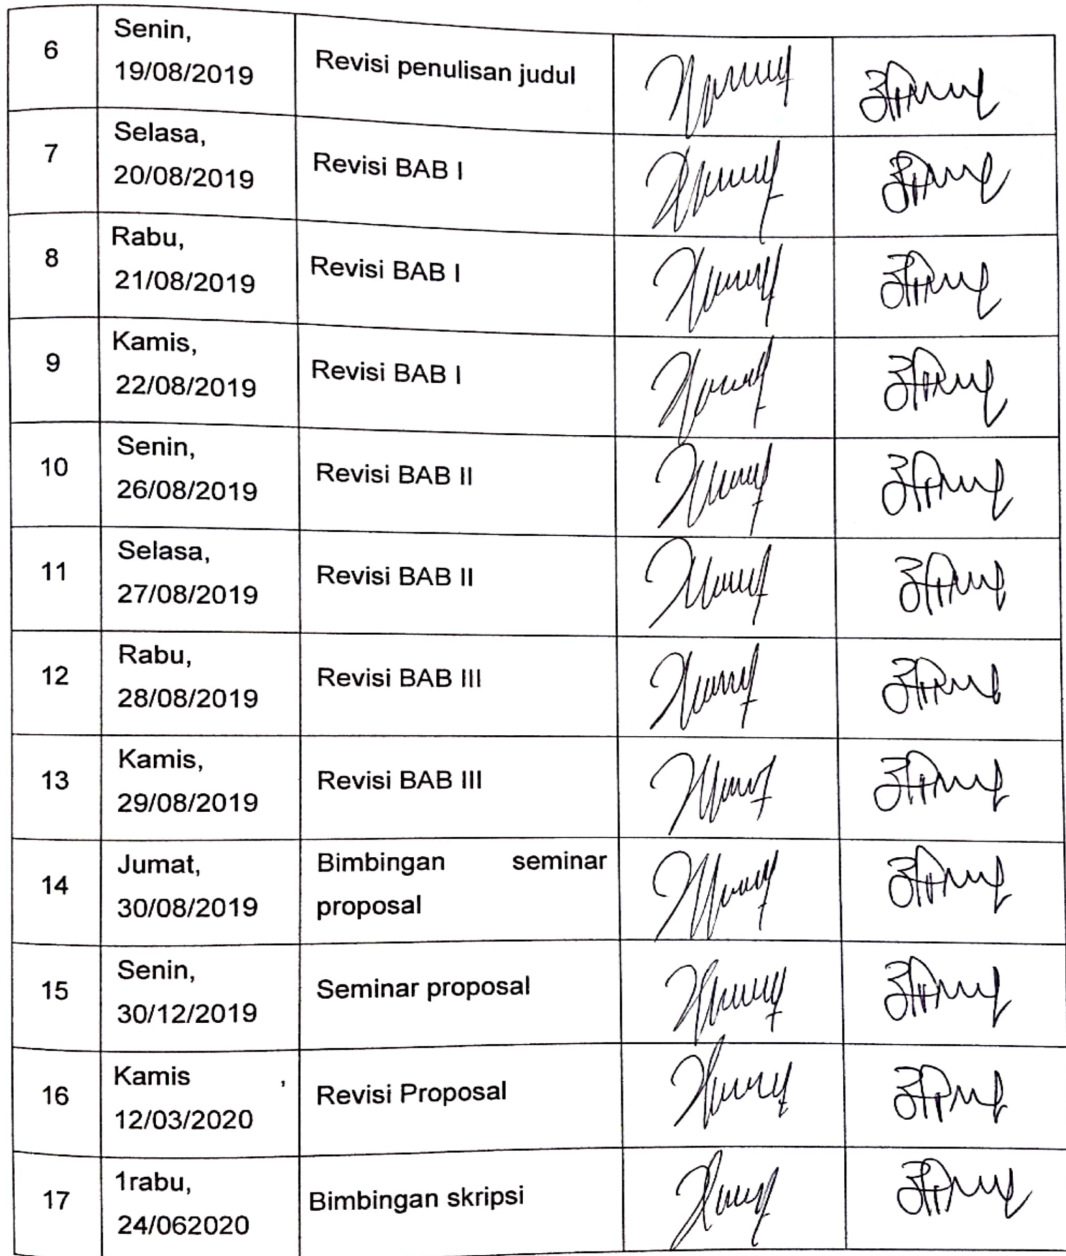 6
Senin,
19/08/2019
Revisi penulisan judul
7
Selasa,
20/08/2019
Revisi BAB I
8
Rabu,
21/08/2019
Revisi BAB I
9
Kamis,
22/08/2019
Revisi BAB I
10
Senin,
26/08/2019
Revisi BAB II
11
Selasa,
27/08/2019
Revisi BAB II
12
Rabu,
28/08/2019
Revisi BAB III
13
Kamis,
29/08/2019
Revisi BAB III
14
Jumat,
30/08/2019
Bimbingan seminar
proposal
15
Senin,
30/12/2019
Seminar proposal
16
Kamis ,
12/03/2020
Revisi Proposal
17
1rabu,
24/062020
Bimbingan skripsi